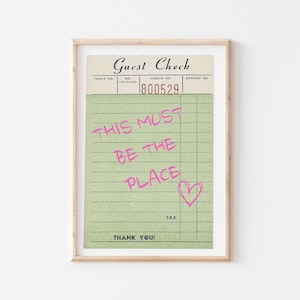 Guest Check
TABLE NO. NO. PERSONS CHECK NO. SERVER NO.
800529
THIS MUST
BE THE
PLACE
TAX
THANK YOU!